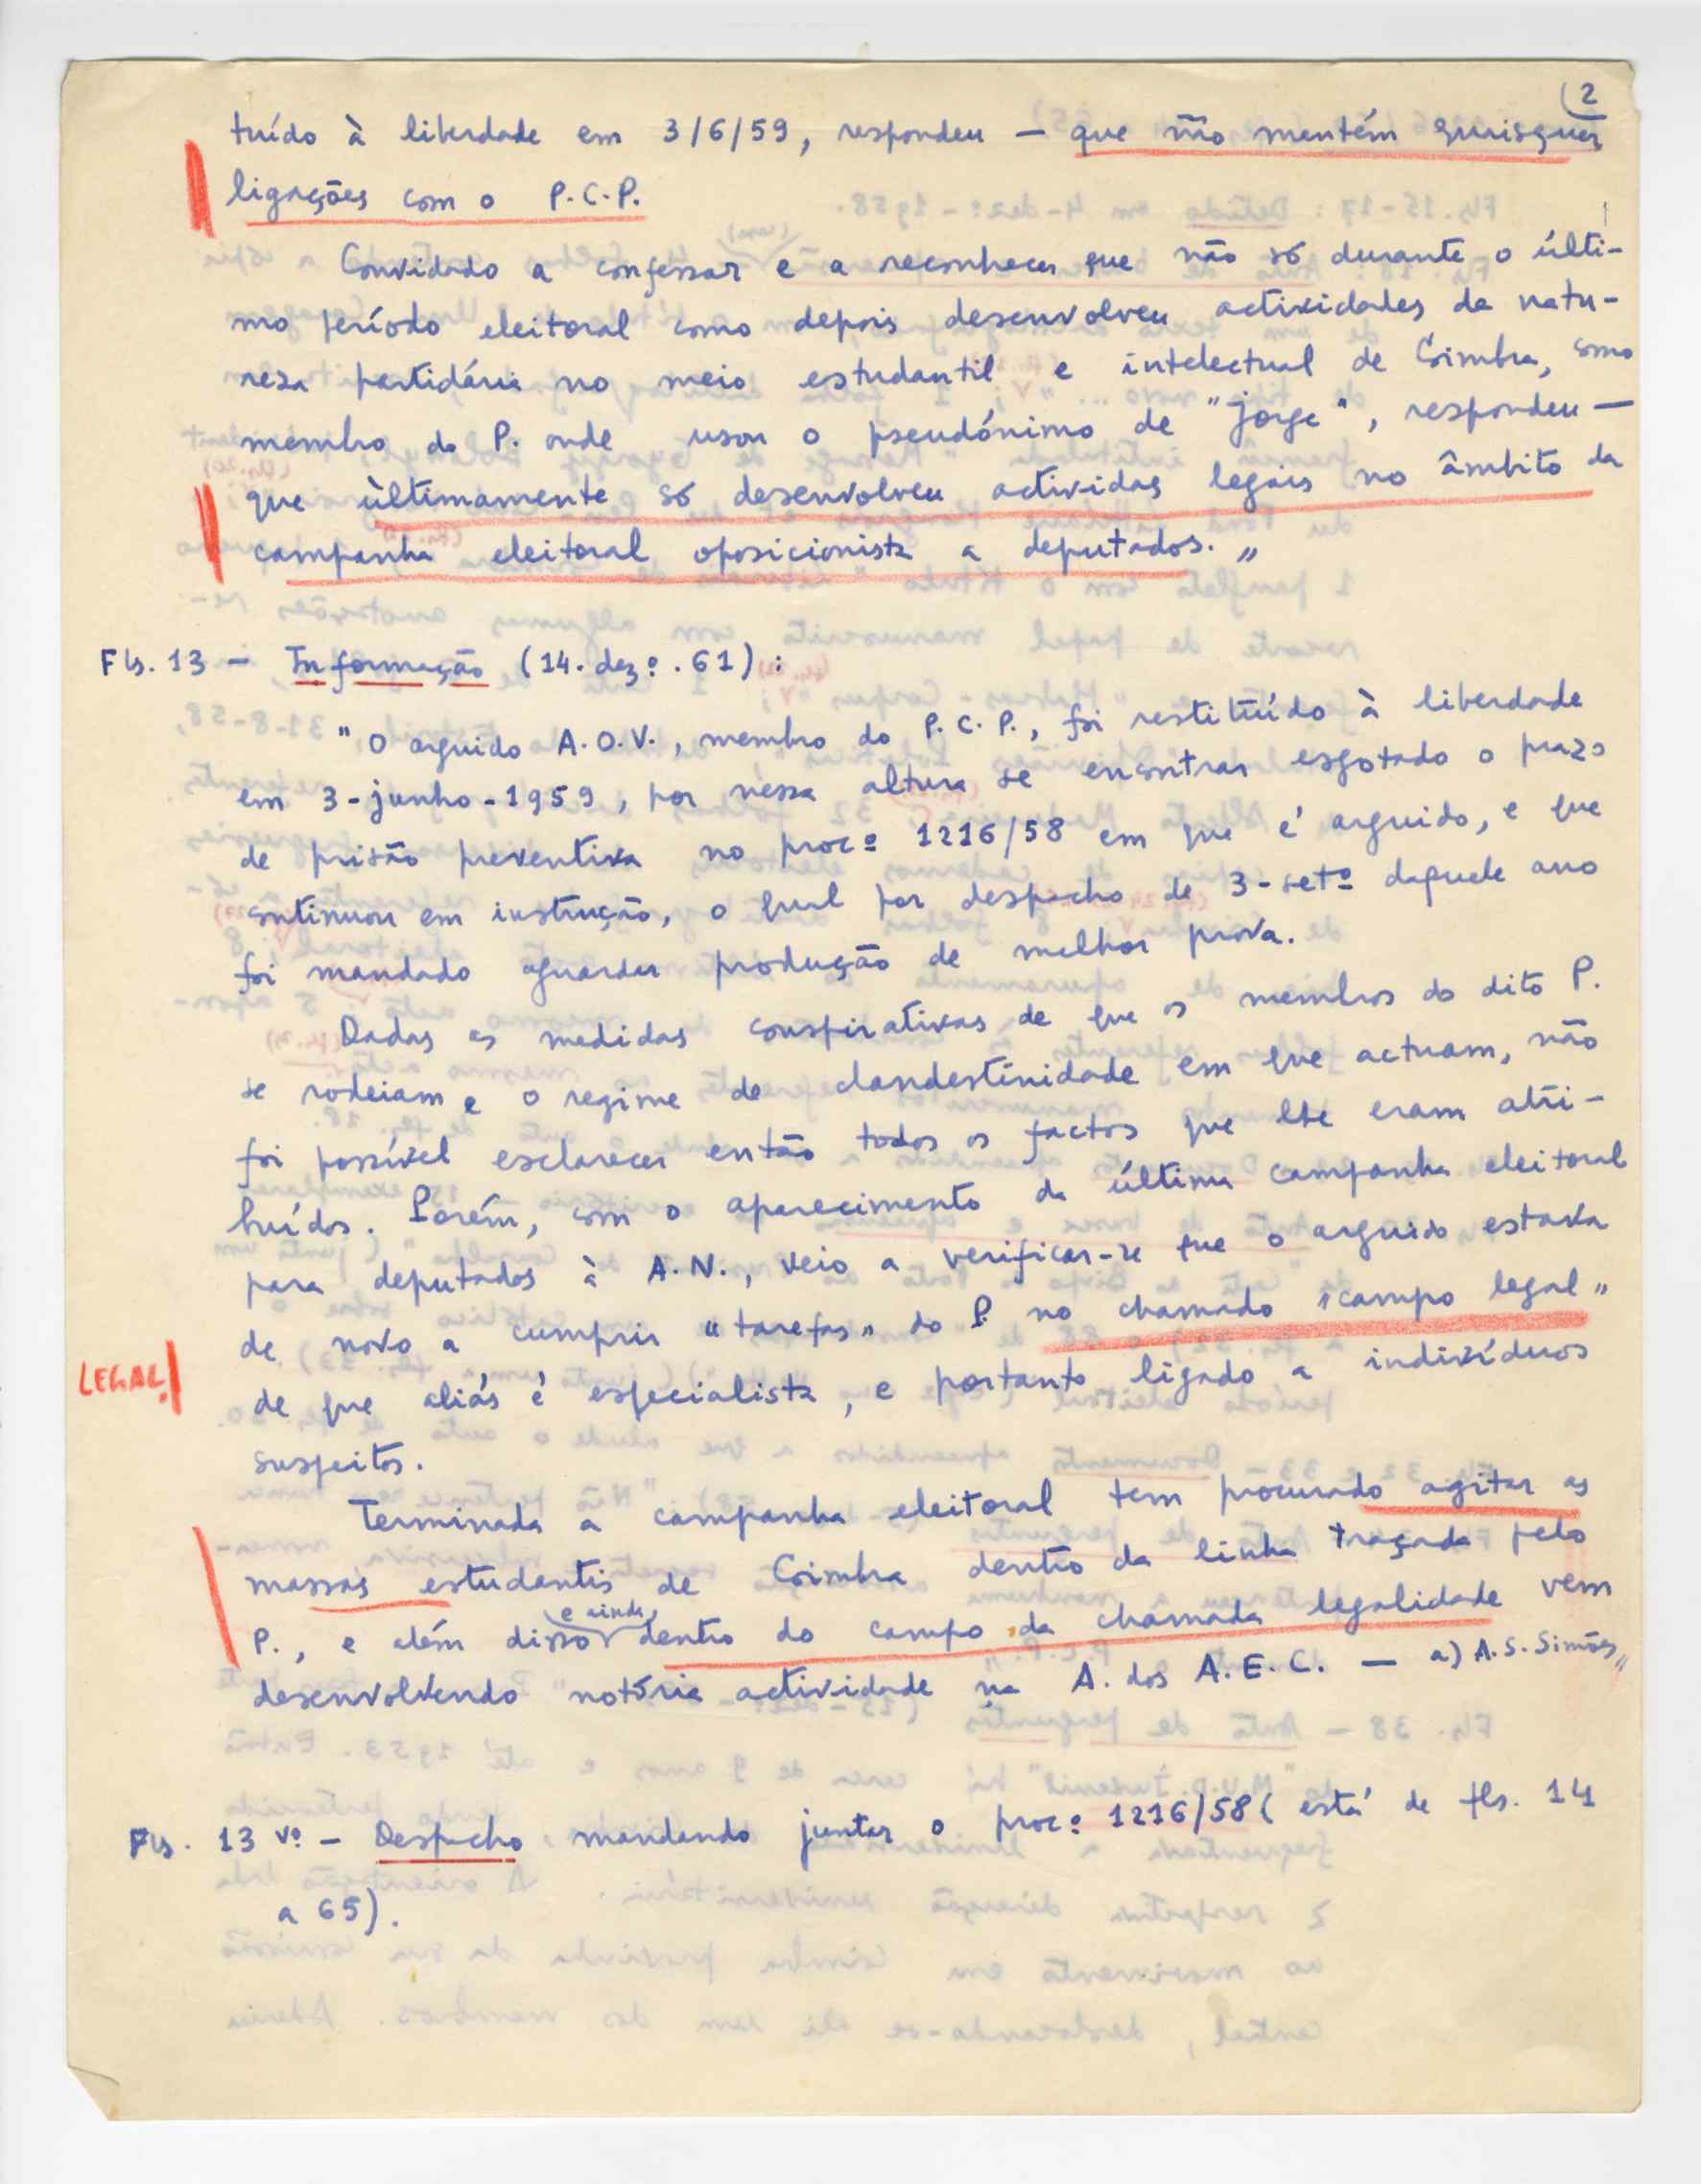 2
tuído à liberdade em 3/6/59, respondeu — que não mentém quaisquer
ligações com o P.C.P.
Convidado a confessar e a reconhecer que não só durante o últi-
mo período eleitoral como depois desenvolveu actividades de natu-
reza partidária no meio estudantil e intelectual de Coimbra, como
membro do P. onde usou o pseudónimo de "Jorge", respondeu —
que ùltimamente só desenvolveu actividas legais no âmbito da
campanha eleitoral oposicionista a deputados."
Fls. 13 — Informação (14.dezº.61):
"O arguido A.O.V., membro do P.C.P., foi restituído à liberdade
em 3-junho-1959, por nessa altura se encontrar esgotado o prazo
de prisão preventiva no procº 1216/58 em que é arguido, e que
continuou em instrução, o qual por despacho de 3-setº daquele ano
foi mandado aguardar produção de melhor prova.
Dadas as medidas conspirativas de que os membros do dito P.
se rodeiam e o regime de clandestinidade em que actuam, não
foi possível esclarecer então todos os factos que lhe eram atri-
buídos. Porém, com o aparecimento da última campanha eleitoral
para deputados à A.N., veio a verificar-se que o arguido estava
de novo a cumprir "tarefas" do P. no chamado "campo legal"
LEGAL!
de que aliás é especialista, e portanto ligado a indivíduos
suspeitos.
Terminada a campanha eleitoral tem procurado agitar as
massas estudantis de Coimbra dentro da linha traçada pelo
P., e além disso e ainda dentro do campo da chamada legalidade vem
desenvolvendo notória actividade na A. dos A.E.C. — a) A.S. Simões"
Fls. 13 vº — Despacho mandando juntar o procº 1216/58 (está de fls. 14
a 65).